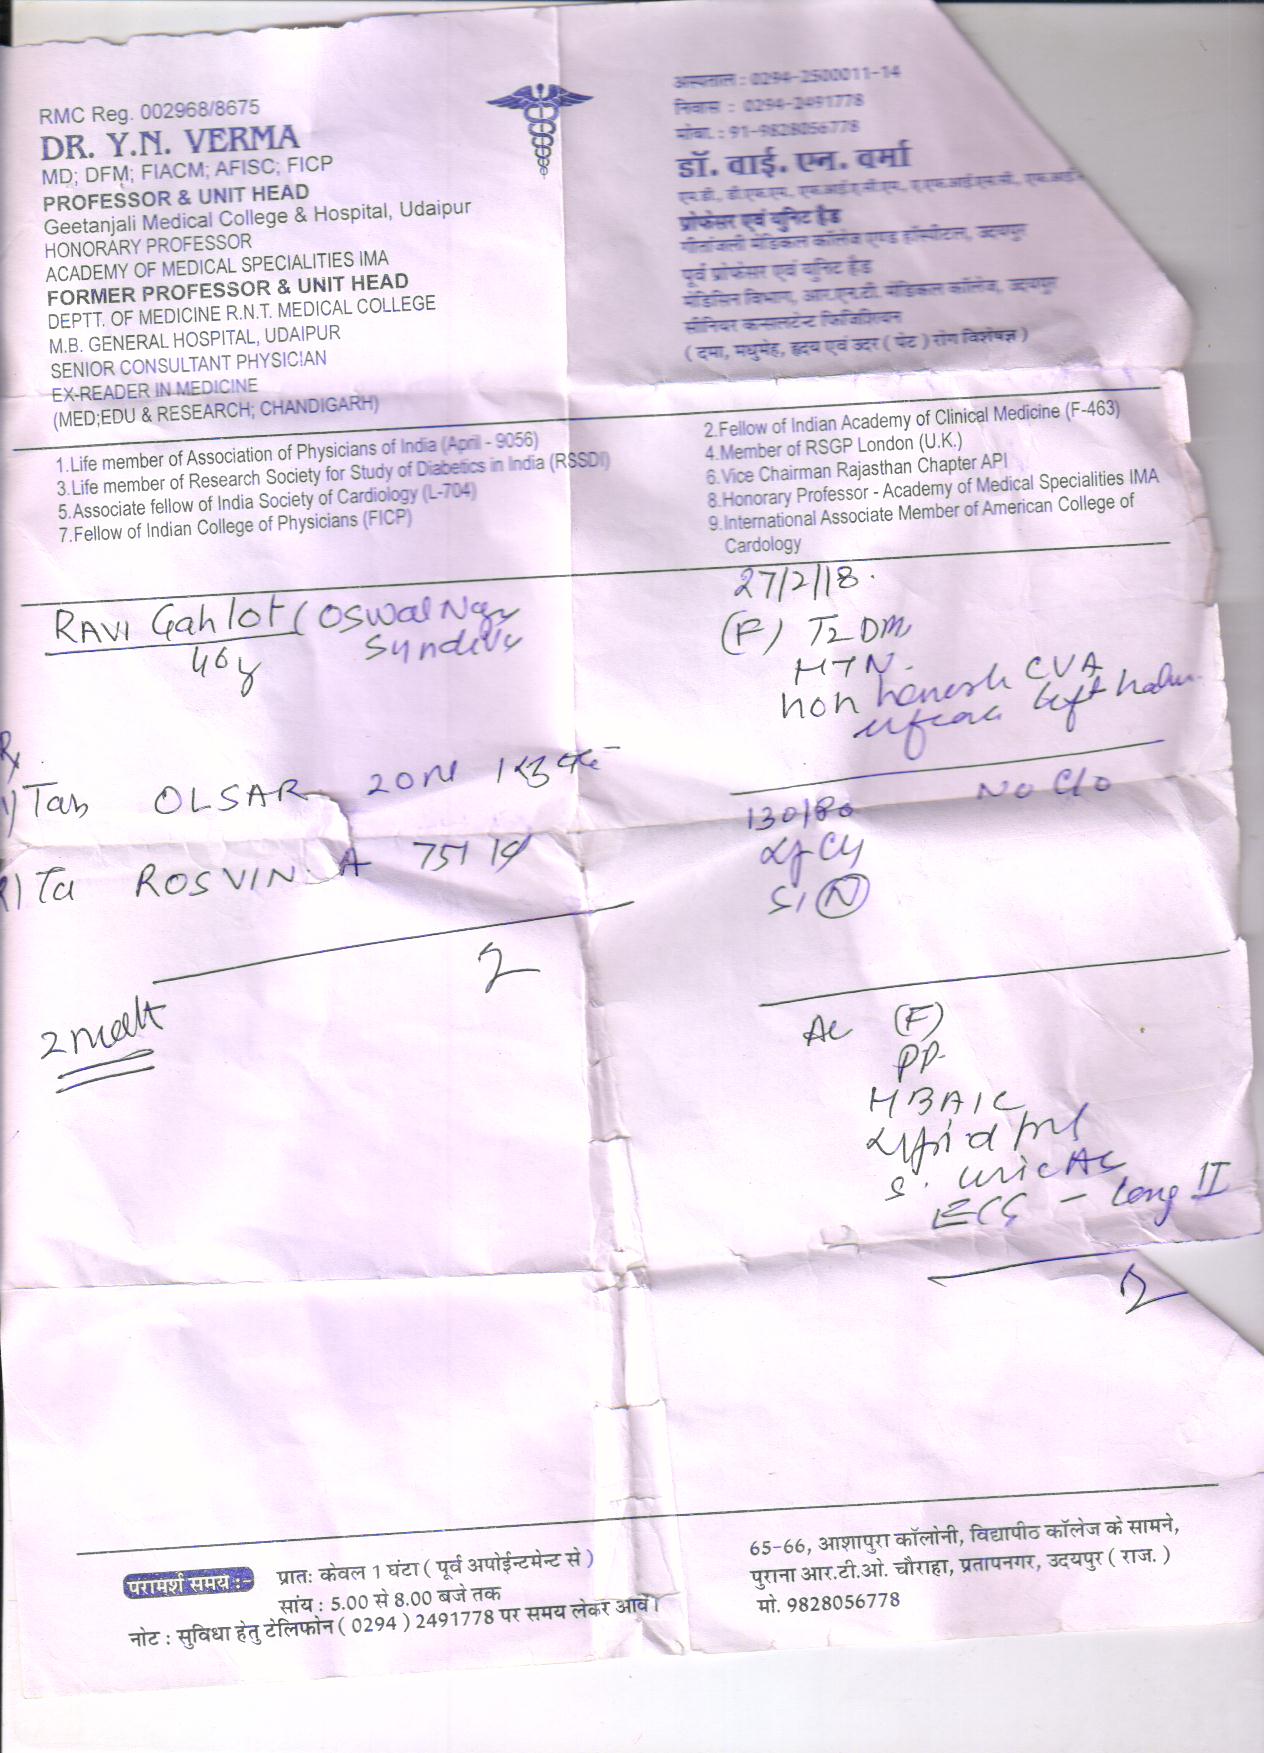 RMC Reg. 002968/8675
DR. Y.N. VERMA
MD; DFM; FIACM; AFISC; FICP
PROFESSOR & UNIT HEAD
Geetanjali Medical College & Hospital, Udaipur
HONORARY PROFESSOR
ACADEMY OF MEDICAL SPECIALITIES IMA
FORMER PROFESSOR & UNIT HEAD
DEPTT. OF MEDICINE R.N.T. MEDICAL COLLEGE
M.B. GENERAL HOSPITAL, UDAIPUR
SENIOR CONSULTANT PHYSICIAN
EX-READER IN MEDICINE
(MED;EDU & RESEARCH; CHANDIGARH)
अस्पताल : 0294-2500011-14
निवास : 0294-2491778
मोबा. : 91-9828056778
डॉ. वाई. एन. वर्मा
एम.डी., डी.एफ.एम., एफ.आई.ए.सी.एम., ए.एफ.आई.एस.सी., एफ.आई
प्रोफेसर एवं यूनिट हैड
गीतांजली मेडिकल कॉलेज एण्ड हॉस्पीटल, उदयपुर
पूर्व प्रोफेसर एवं यूनिट हैड
मेडिसिन विभाग, आर.एन.टी. मेडिकल कॉलेज, उदयपुर
सीनियर कन्सलटेन्ट फिजिशियन
( दमा, मधुमेह, हृदय एवं उदर ( पेट ) रोग विशेषज्ञ )
1.Life member of Association of Physicians of India (April - 9056)
3.Life member of Research Society for Study of Diabetics in India (RSSDI)
5.Associate fellow of India Society of Cardiology (L-704)
7.Fellow of Indian College of Physicians (FICP)
2.Fellow of Indian Academy of Clinical Medicine (F-463)
4.Member of RSGP London (U.K.)
6.Vice Chairman Rajasthan Chapter API
8.Honorary Professor - Academy of Medical Specialities IMA
9.International Associate Member of American College of
Cardology
RAVI Gahlot ( Oswal Nagr
46y
27/2/18.
(F) T2DM
HTN.
non CVA
left
Rx
1) Tab OLSAR 20
2) Ta ROSVIN A 75
2
130/80 No C/o
S1 (N)
Ac (F)
PP
HBA1C
S. Uric Ac
ECG - Long II
2
परामर्श समय :-
प्रातः केवल 1 घंटा ( पूर्व अपोईन्टमेन्ट से )
सांय : 5.00 से 8.00 बजे तक
नोट : सुविधा हेतु टेलिफोन ( 0294 ) 2491778 पर समय लेकर आवें।
65-66, आशापुरा कॉलोनी, विद्यापीठ कॉलेज के सामने,
पुराना आर.टी.ओ. चौराहा, प्रतापनगर, उदयपुर ( राज. )
मो. 9828056778